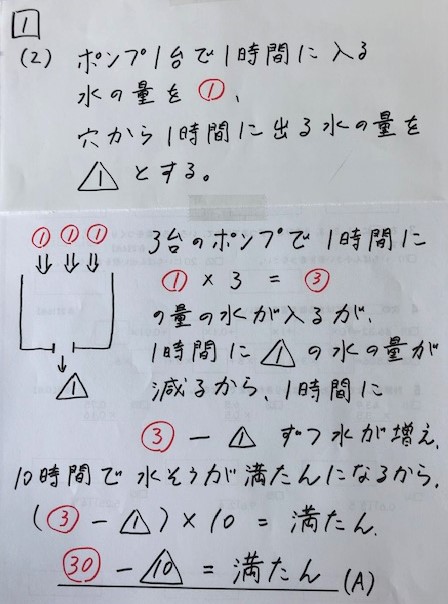 1
(2) ポンプ1台で1時間に入る
水の量を①、
穴から1時間に出る水の量を
△1とする。
① ① ①
3台のポンプで1時間に
① × 3 = ③
の量の水が入るが、
1時間に△1の水の量が
△1
減るから、1時間に
③ − △1 ずつ水が増え、
10時間で水そうが満たんになるから、
(③ − △1) × 10 = 満たん、
㉚ − △10 = 満たん (A)